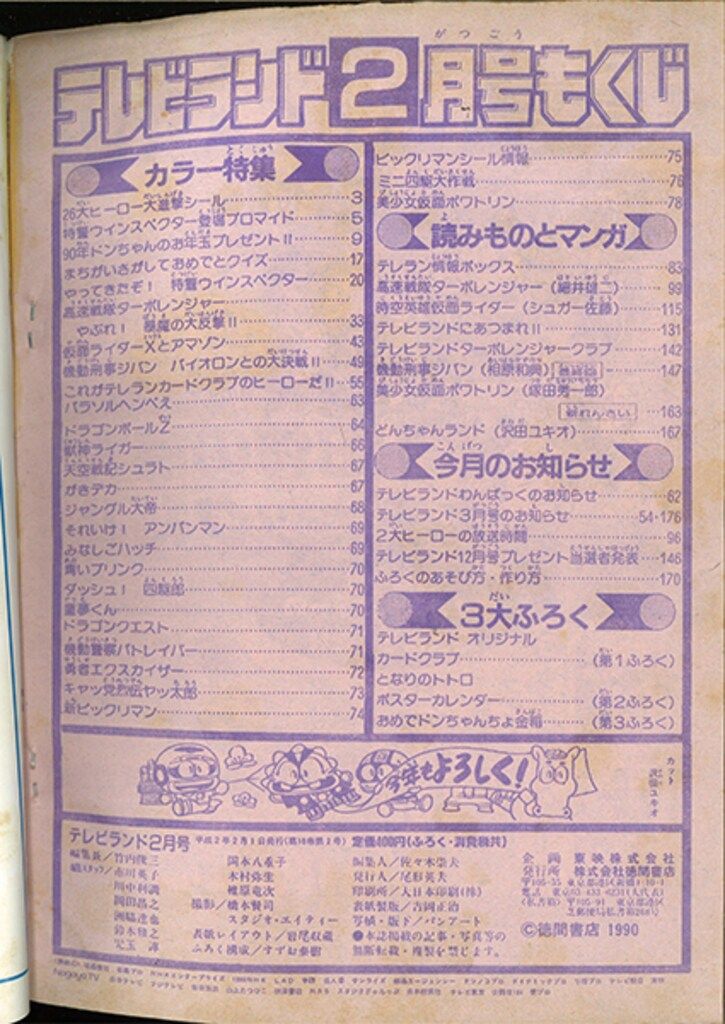 がつごう
テレビランド2月号もくじ
カラー特集
26大ヒーロー大進撃シール 3
特警ウインスペクター登場ブロマイド 5
90年ドンちゃんのお年玉プレゼント!! 9
まちがいさがしておめでとクイズ 17
やってきたぞ! 特警ウインスペクター 20
高速戦隊ターボレンジャー
やぶれ! 暴魔の大反撃!! 33
仮面ライダーXとアマゾン 43
機動刑事ジバン バイオロンとの大決戦!! 49
これがテレランカードクラブのヒーローだ!! 55
パラソルヘンべえ 63
ドラゴンボールZ 64
獣神ライガー 66
天空戦記シュラト 67
がきデカ 67
ジャングル大帝 68
それいけ! アンパンマン 69
みなしごハッチ 69
青いブリンク 70
ダッシュ! 四駆郎 70
童夢くん 70
ドラゴンクエスト 71
機動警察パトレイバー 71
勇者エクスカイザー 72
キャッ党烈伝ヤッ太郎 73
新ビックリマン 74
ビックリマンシール情報 75
ミニ四駆大作戦 76
美少女仮面ポワトリン 78
読みものとマンガ
テレラン情報ボックス 83
高速戦隊ターボレンジャー(細井雄二) 99
時空英雄仮面ライダー(シュガー佐藤) 115
テレビランドにあつまれ!! 131
テレビランドターボレンジャークラブ 142
機動刑事ジバン(相原和典)最終回 147
美少女仮面ポワトリン(塚田勇一郎)
新れんさい 163
どんちゃんランド(沢田ユキオ) 167
今月のお知らせ
テレビランドわんぱっくのお知らせ 62
テレビランド3月号のお知らせ 54・176
2大ヒーローの放送時間 96
テレビランド12月号プレゼント当選者発表 146
ふろくのあそび方・作り方 170
3大ふろく
テレビランド オリジナル
カードクラブ (第1ふろく)
となりのトトロ
ポスターカレンダー (第2ふろく)
おめでドンちゃんちょ金箱 (第3ふろく)
今年もよろしく!
カット 沢田ユキオ
テレビランド2月号 平成2年2月1日発行(第18巻第2号) 定価400円(ふろく・消費税共)
編集長/竹内俊三
市川英子
川中利満
岡田昌之
洲脇達也
鈴木雅之
岡本八重子
木村弥生
椎原竜次
撮影/橋本賢司
スタジオ・エイティー
表紙レイアウト/岩尾収蔵
ふろく構成/すずお泰樹
編集人/佐々木崇夫
発行人/尾形英夫
印刷所/大日本印刷(株)
表紙製版/吉岡正治
写植・版下/パンアート
●本誌掲載の記事・写真等の
無断転載・複製を禁じます。
企画 東映株式会社
発行所 株式会社徳間書店
©徳間書店 1990
NagoyaTV